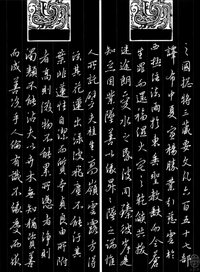 之国總將三藏要文凡六百五十七部
譯布中夏宣揚勝業引慈雲於
西極注法雨於東垂聖教缺而復全蒼
生罪而還福濕火宅之乾燄共拔
迷途朗愛水之昏波同臻彼岸是
知惡因業墜善以緣昇昇墜之端惟
人所託譬夫桂生高嶺雲露方得
泫其花蓮出淥波飛塵不能污其
葉非蓮性自潔而桂質本貞良由所附
者高則微物不能累所憑者淨則
濁類不能沾夫以卉木無知猶資善
而成善況乎人倫有識不緣慶而求